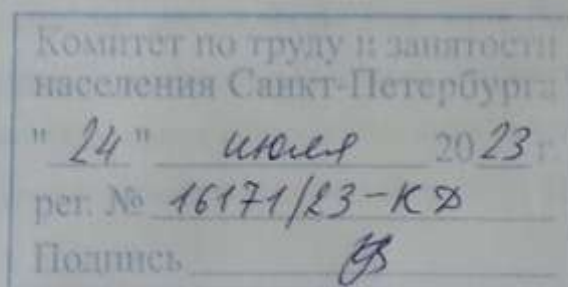 Комитет по труду и занятости
населения Санкт-Петербурга
" 24 " июля 2023 г.
рег. № 16171/23-КД
Подпись